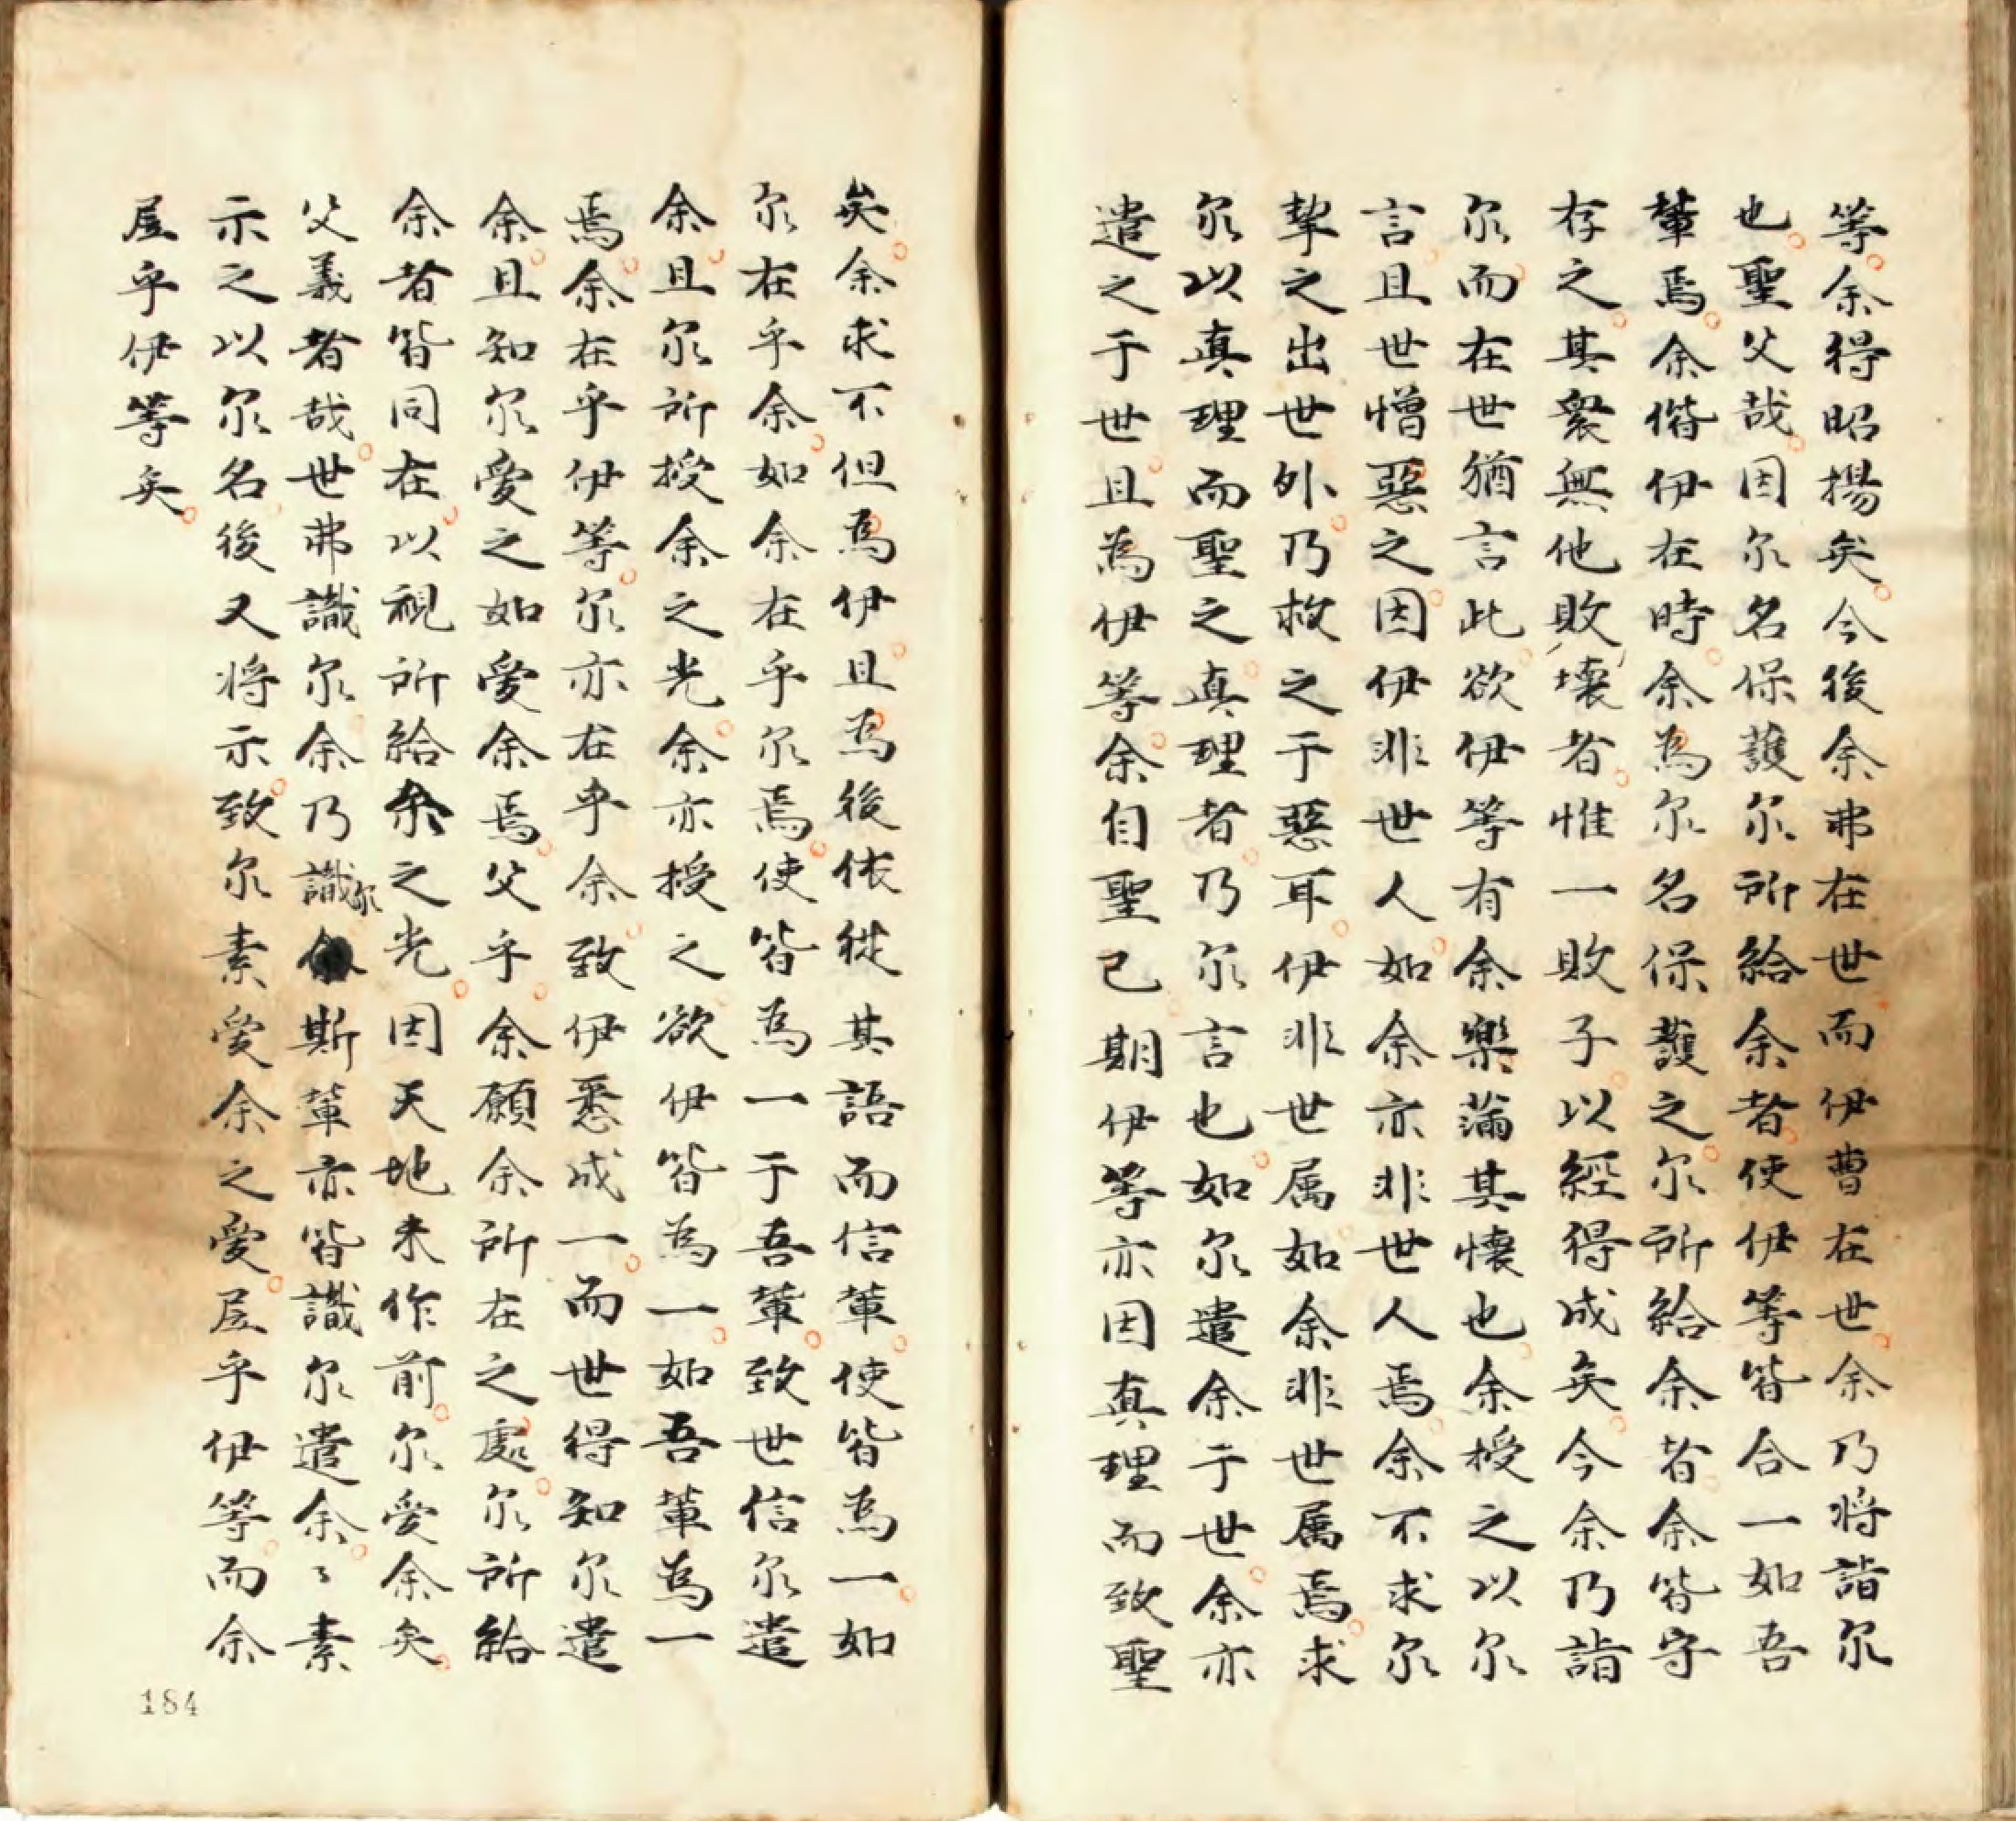 等余得昭揚矣今後余弗在世而伊曹在世余乃将詣尔
也聖父哉因尔名保護尔所給余者使伊等皆合一如吾
輩焉余偕伊在時余為尔名保護之尔所給余者余皆守
存之其衆無他敗壞者惟一敗子以經得成矣今余乃詣
尔而在世猶言此欲伊等有余樂滿其懷也余授之以尔
言且世憎惡之因伊非世人如余亦非世人焉余不求尔
挈之出世外乃救之于惡耳伊非世属如余非世属焉求
尔以真理而聖之真理者乃尔言也如尔遣余于世余亦
遣之于世且為伊等余自聖己期伊等亦因真理而致聖
矣余求不但為伊且為後依從其語而信輩使皆為一如
尔在乎余如余在乎尔焉使皆為一于吾輩致世信尔遣
余且尔所授余之光余亦授之欲伊皆為一如吾輩為一
焉余在乎伊等尔亦在乎余致伊悉成一而世得知尔遣
余且知尔愛之如愛余焉父乎余願余所在之處尔所給
余者皆同在以視所給余之光因天地未作前尔愛余矣
父義者哉世弗識尔余乃識尔斯輩亦皆識尔遣余〻素
示之以尔名後又将示致尔素愛余之愛居乎伊等而余
居乎伊等矣
184